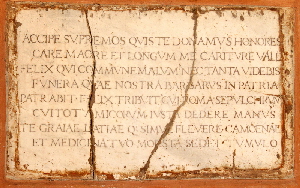 ACCIPE SVPREMOS QVIS TE DONAMVS HONORES
CARE MACRE ET LONGVM VALE
FELIX QVI COMMVNE MALVM NEC TANTA VIDEBIS
FVNERA QVAE NOSTRA BARBARVS IN PATRIA
PATRABIT FELIX TRIBVIT CVI ROMA SEPVLCHRVM
CVI TOT AMICORVM IVSTA DEDERE MANVS
TE GRAIAE LATIAE QVE FLEVERE CAMOENAE
ET MEDICINA TVO MOESTA SEDET TVMVLO